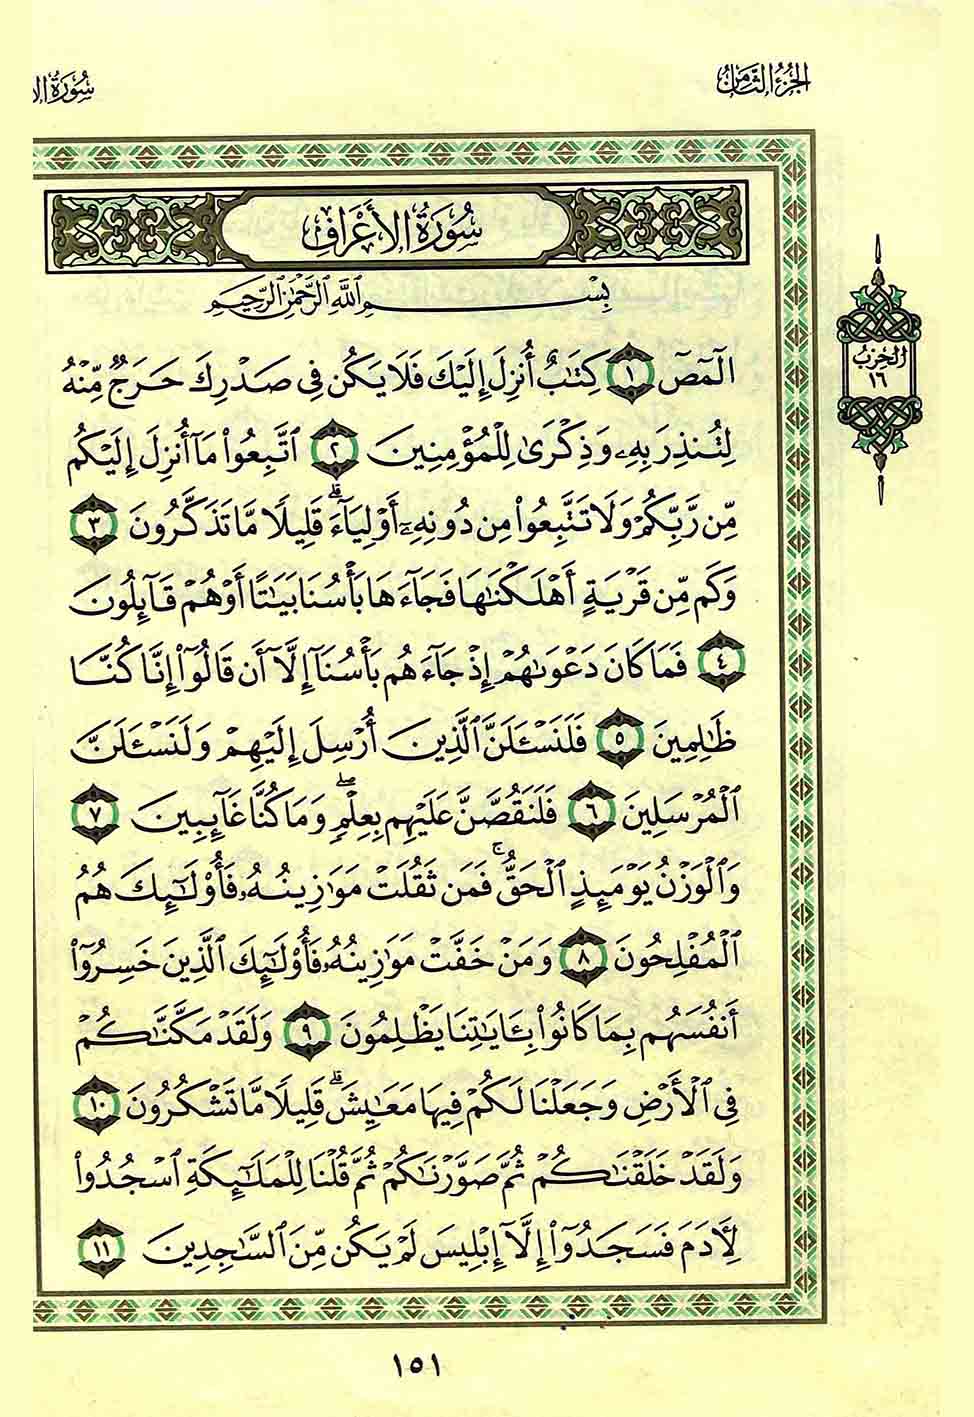 الجزء الثامن
سورة الا
سُورَةُ الأَعْرَافِ
بِسْمِ ٱللَّهِ ٱلرَّحْمَٰنِ ٱلرَّحِيمِ
الٓمٓصٓ ١ كِتَٰبٌ أُنزِلَ إِلَيْكَ فَلَا يَكُن فِي صَدْرِكَ حَرَجٌ مِّنْهُ
لِتُنذِرَ بِهِۦ وَذِكْرَىٰ لِلْمُؤْمِنِينَ ٢ ٱتَّبِعُوا۟ مَآ أُنزِلَ إِلَيْكُم
مِّن رَّبِّكُمْ وَلَا تَتَّبِعُوا۟ مِن دُونِهِۦٓ أَوْلِيَآءَ ۗ قَلِيلًا مَّا تَذَكَّرُونَ ٣
وَكَم مِّن قَرْيَةٍ أَهْلَكْنَٰهَا فَجَآءَهَا بَأْسُنَا بَيَٰتًا أَوْ هُمْ قَآئِلُونَ
٤ فَمَا كَانَ دَعْوَىٰهُمْ إِذْ جَآءَهُم بَأْسُنَآ إِلَّآ أَن قَالُوٓا۟ إِنَّا كُنَّا
ظَٰلِمِينَ ٥ فَلَنَسْـَٔلَنَّ ٱلَّذِينَ أُرْسِلَ إِلَيْهِمْ وَلَنَسْـَٔلَنَّ
ٱلْمُرْسَلِينَ ٦ فَلَنَقُصَّنَّ عَلَيْهِم بِعِلْمٍ ۖ وَمَا كُنَّا غَآئِبِينَ ٧
وَٱلْوَزْنُ يَوْمَئِذٍ ٱلْحَقُّ ۚ فَمَن ثَقُلَتْ مَوَٰزِينُهُۥ فَأُو۟لَٰٓئِكَ هُمُ
ٱلْمُفْلِحُونَ ٨ وَمَنْ خَفَّتْ مَوَٰزِينُهُۥ فَأُو۟لَٰٓئِكَ ٱلَّذِينَ خَسِرُوٓا۟
أَنفُسَهُم بِمَا كَانُوا۟ بِـَٔايَٰتِنَا يَظْلِمُونَ ٩ وَلَقَدْ مَكَّنَّٰكُمْ
فِي ٱلْأَرْضِ وَجَعَلْنَا لَكُمْ فِيهَا مَعَٰيِشَ ۗ قَلِيلًا مَّا تَشْكُرُونَ ١٠
وَلَقَدْ خَلَقْنَٰكُمْ ثُمَّ صَوَّرْنَٰكُمْ ثُمَّ قُلْنَا لِلْمَلَٰٓئِكَةِ ٱسْجُدُوا۟
لِـَٔادَمَ فَسَجَدُوٓا۟ إِلَّآ إِبْلِيسَ لَمْ يَكُن مِّنَ ٱلسَّٰجِدِينَ ١١
الحزب
١٦
١٥١